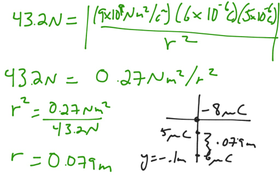 43.2N = |(9x10⁹Nm²/c²)(6x10⁻⁶c)(5x10⁻⁶c)/r²|
43.2N = 0.27Nm²/r²
r² = 0.27Nm²/43.2N
r = 0.079m
-8μC
5μC
.079m
y=-.1m
6μC